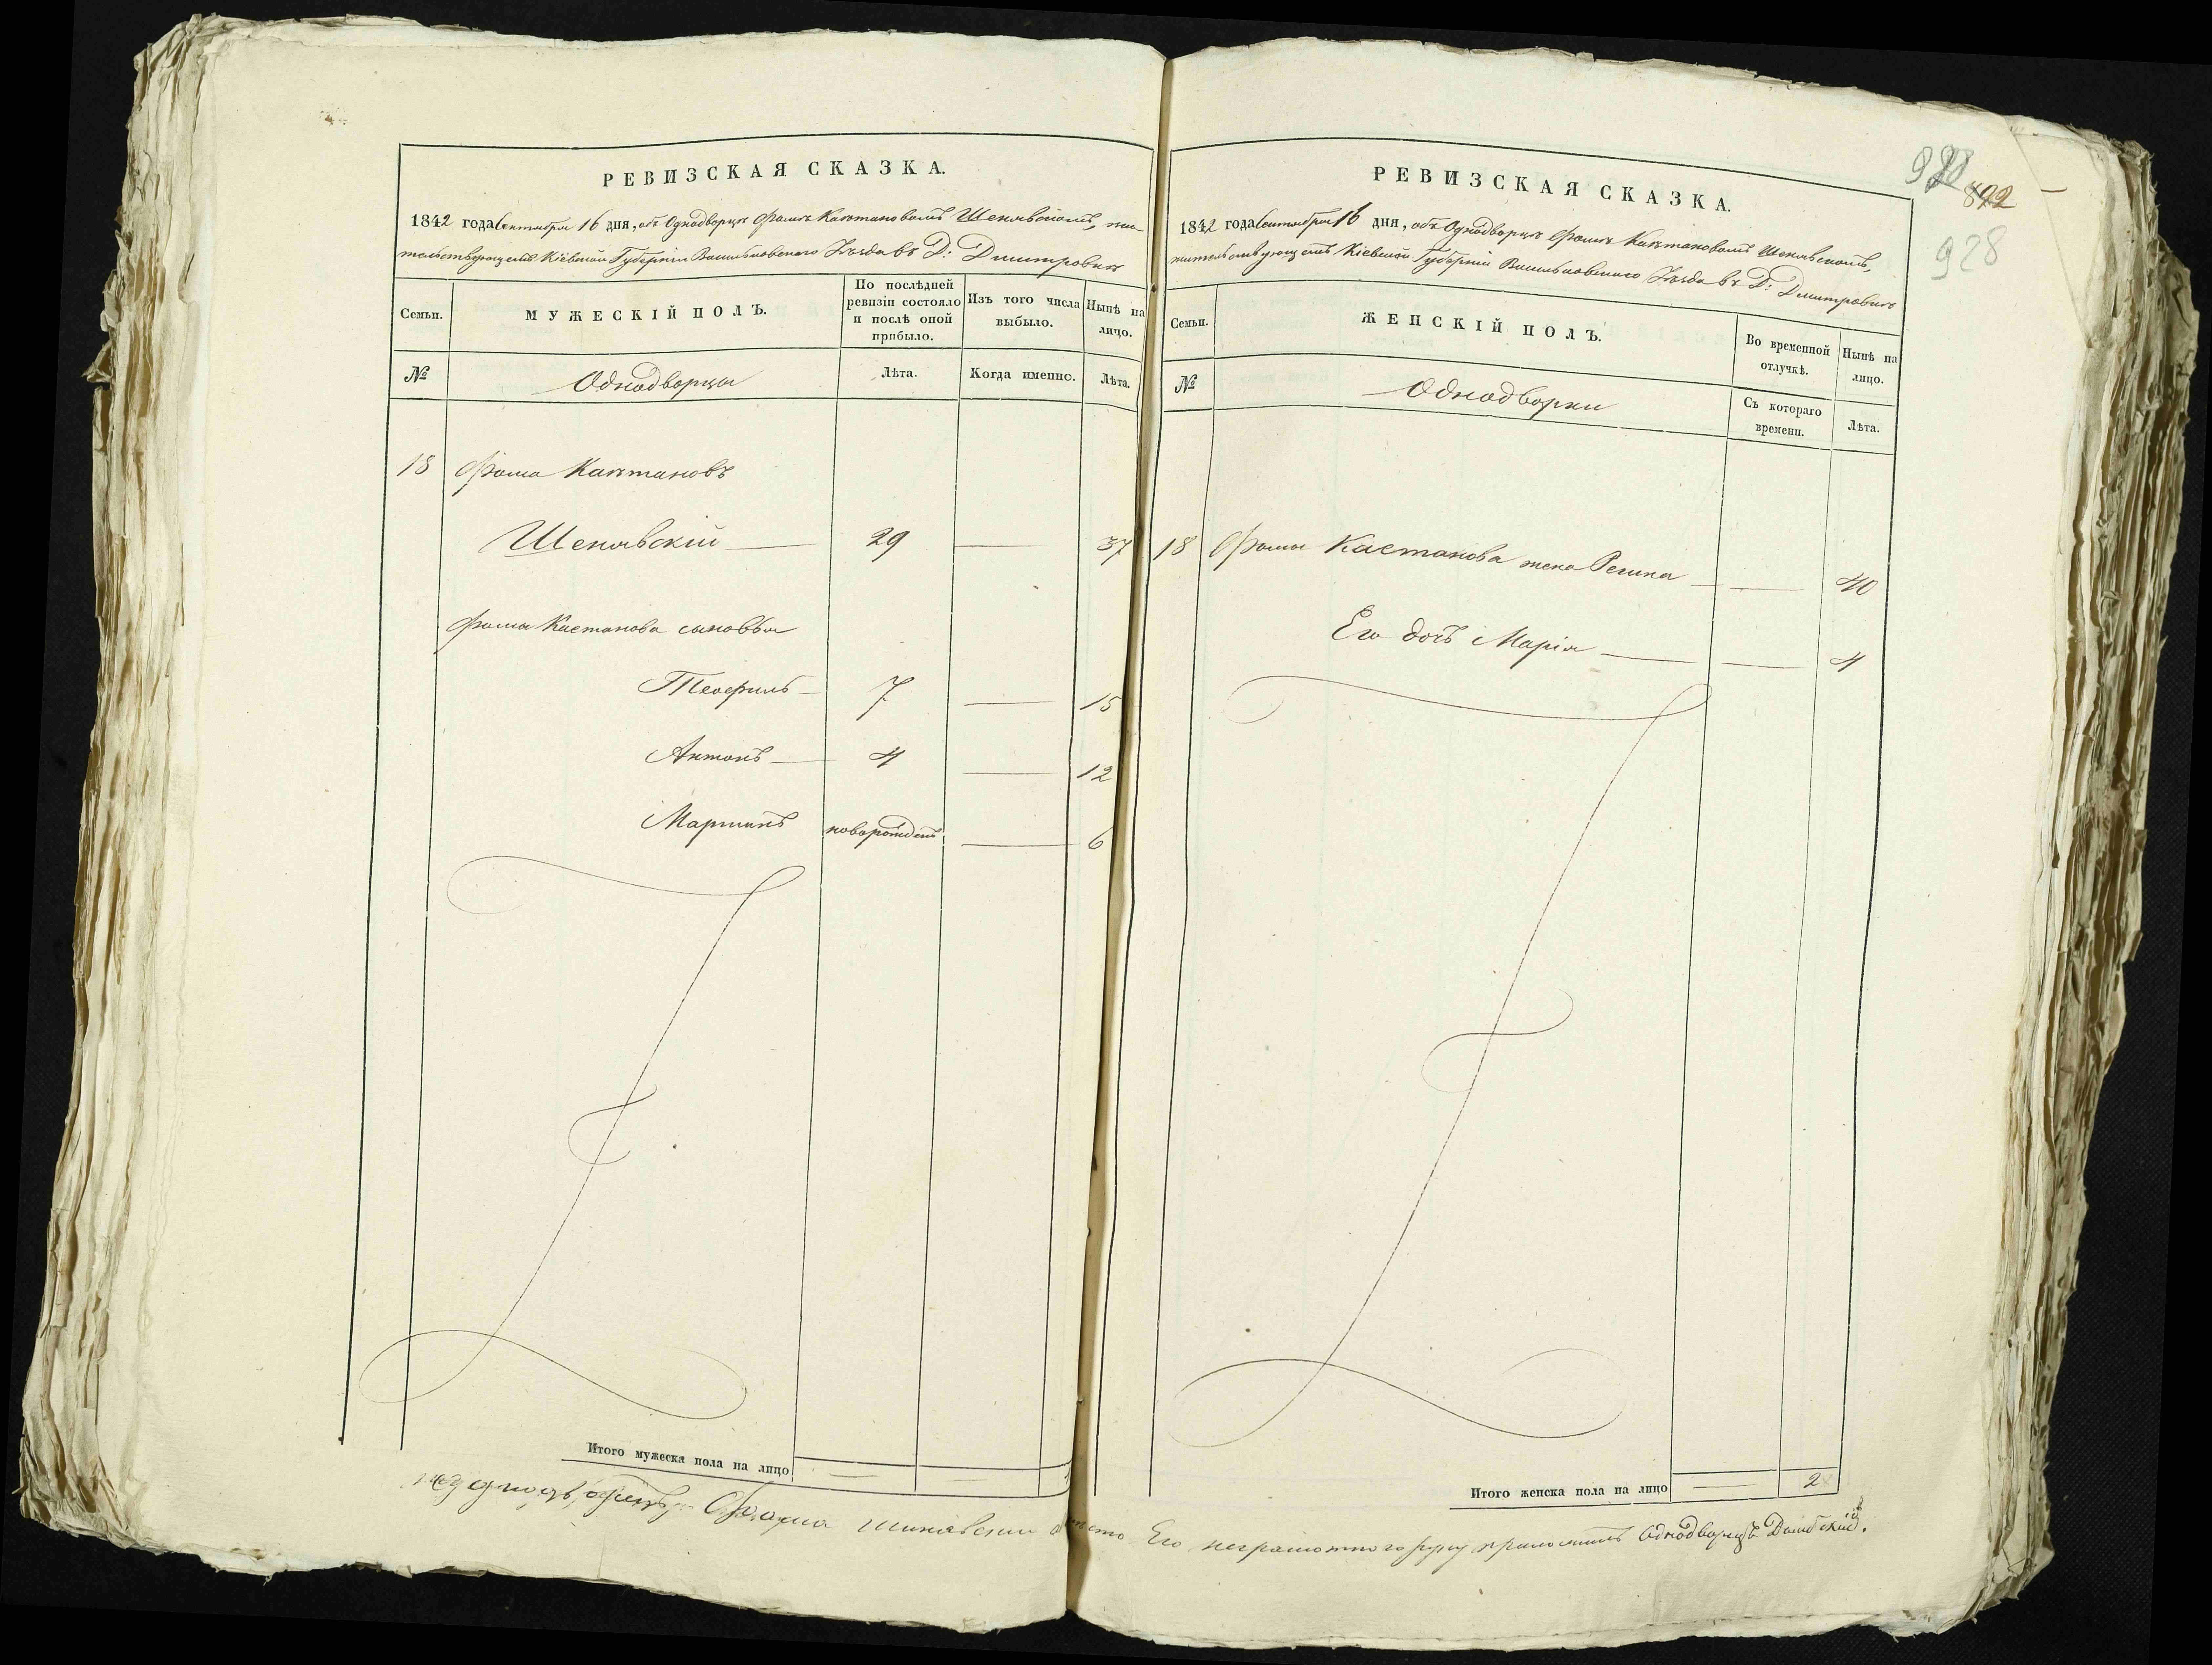 РЕВИЗСКАЯ СКАЗКА.
1842 года Сентября 16 дня, объ Однодворцѣ Фомѣ Каэтановомъ Шенявскомъ, жи-
тельствующемъ Кіевской Губерніи Васильковскаго Уѣзда въ Д: Дмитровкѣ
Семьи.
МУЖЕСКІЙ ПОЛЪ.
По послѣдней ревизіи состояло и послѣ оной прибыло.
Изъ того числа выбыло.
Нынѣ на лицо.
№
Однодворцы
Лѣта.
Когда именно.
Лѣта.
18 Фома Каэтановъ
Шенявскій — 29 — 37
Фомы Каетанова сыновья
Теофилъ — 7 — 15
Антонъ — 4 — 12
Мартинъ новорожденъ — 6
Итого мужеска пола на лицо — —
Фома Шинявскии
РЕВИЗСКАЯ СКАЗКА.
1842 года Сентября 16 дня, объ Однодворцѣ Фомѣ Каэтановомъ Шенявскомъ,
жительствующемъ Кіевской Губерніи Васильковскаго Уѣзда въ Д: Дмитровкѣ
Семьи.
ЖЕНСКІЙ ПОЛЪ.
Во временной отлучкѣ.
Нынѣ на лицо.
№
Однодворки
Съ котораго времени.
Лѣта.
18 Фомы Каетанова жена Регина — — 40
Его дочь Марія — — 4
Итого женска пола на лицо — 2
Его неграмотного руку приложилъ Однодворецъ
892
928